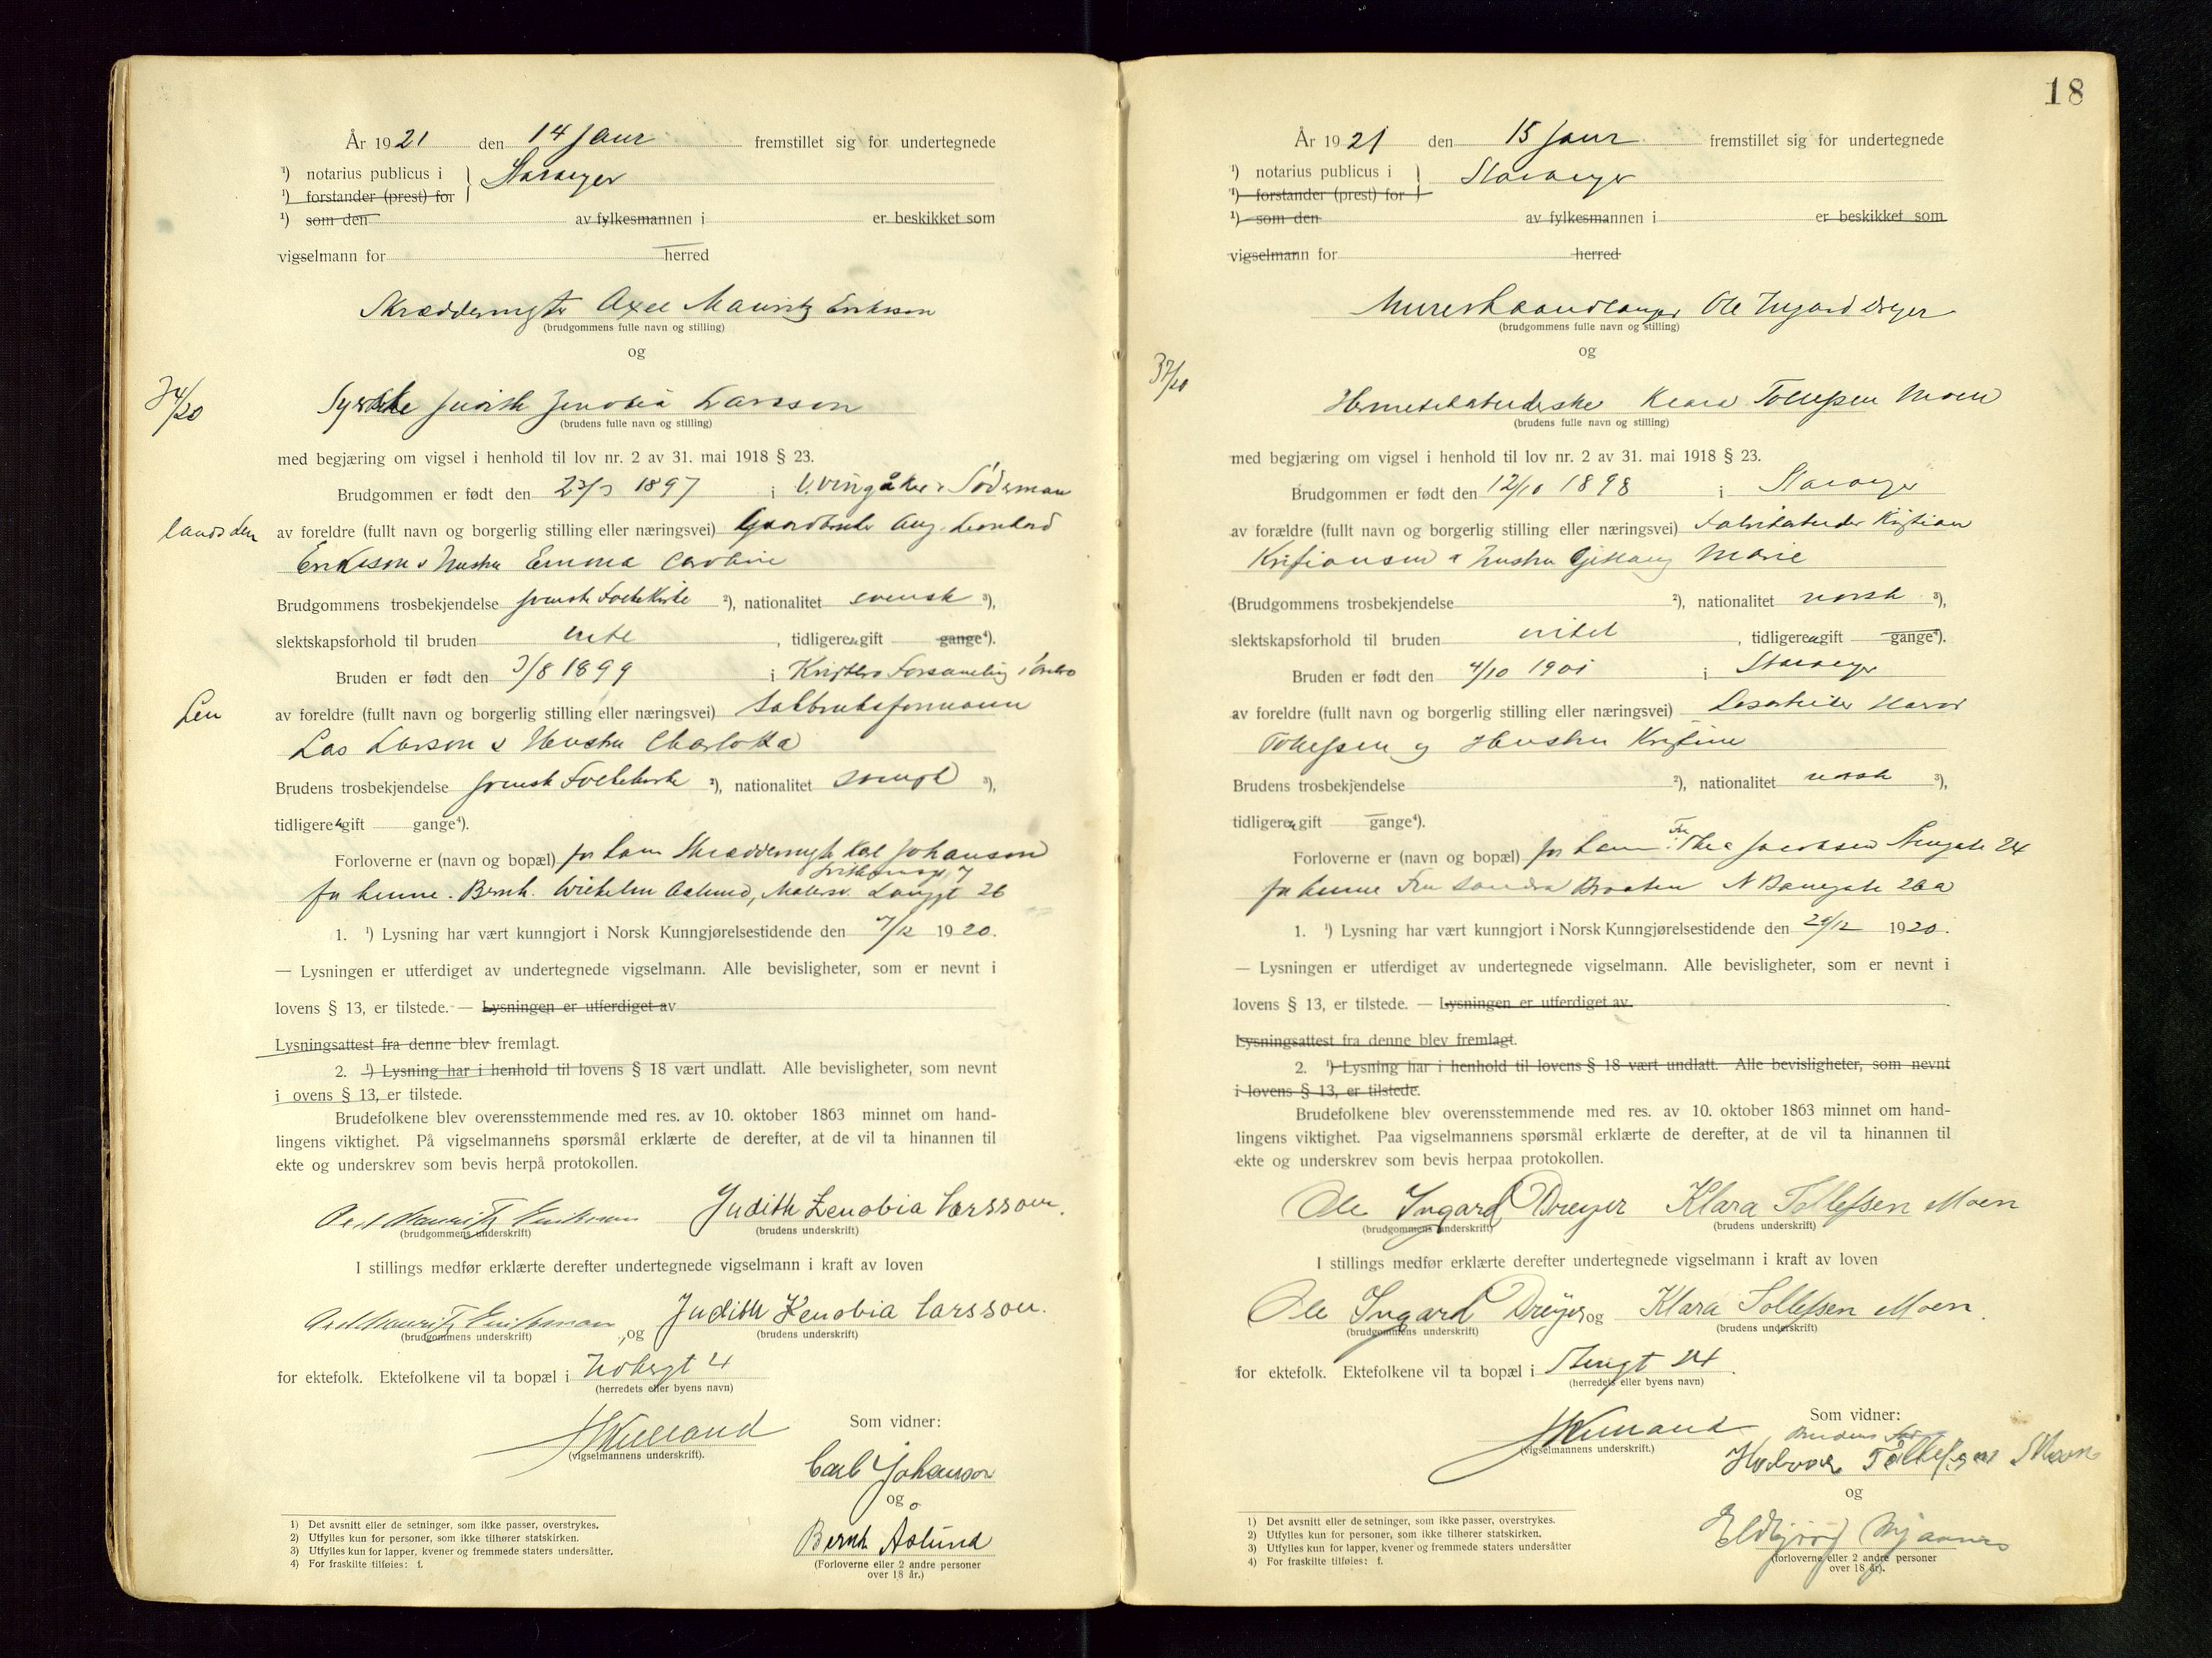 År 1921 den 14 Januar fremstillet sig for undertegnede
¹) notarius publicus i } Stavanger
¹) forstander (prest) for
¹) som den av fylkesmannen i er beskikket som
vigselmann for herred
Axel Mauritz Eriksson
(brudgommens fulle navn og stilling)
og
34/20
Judith Zenobia Larsson
(brudens fulle navn og stilling)
med begjæring om vigsel i henhold til lov nr. 2 av 31. mai 1918 § 23.
Brudgommen er født den 23/3 1897 i V. Vingåker i Söderman
landslen
av foreldre (fullt navn og borgerlig stilling eller næringsvei) Gaardbruker Aug. Leonhard
Eriksson & Hustru Emma Caroline
Brudgommens trosbekjendelse svensk Folkekirke ²), nationalitet svensk ³),
slektskapsforhold til bruden intet, tidligere gift gange⁴).
Bruden er født den 3/8 1899 i Forsamling i Örebro
Len
av foreldre (fullt navn og borgerlig stilling eller næringsvei)
Lars Larson & Hustru Charlotta
Brudens trosbekjendelse svensk Folkekirke ²), nationalitet svensk ³),
tidligere gift gange⁴).
Forloverne er (navn og bopæl) for ham Skræddersvgt Karl Johanson
for henne. Bernh. Wilhelm Aslund, Malersv. Langgt 26
1. ¹) Lysning har vært kunngjort i Norsk Kunngjørelsestidende den 7/12 1920.
— Lysningen er utferdiget av undertegnede vigselmann. Alle bevisligheter, som er nevnt i
lovens § 13, er tilstede. — Lysningen er utferdiget av
Lysningsattest fra denne blev fremlagt.
2. ¹) Lysning har i henhold til lovens § 18 vært undlatt. Alle bevisligheter, som nevnt
i ovens § 13, er tilstede.
Brudefolkene blev overensstemmende med res. av 10. oktober 1863 minnet om hand-
lingens viktighet. På vigselmannens spørsmål erklærte de derefter, at de vil ta hinannen til
ekte og underskrev som bevis herpå protokollen.
Axel Mauritz Eriksson Judith Zenobia Larsson.
(brudgommens underskrift) (brudens underskrift)
I stillings medfør erklærte derefter undertegnede vigselmann i kraft av loven
Axel Mauritz Eriksson, og Judith Zenobia Larsson.
(brudgommens underskrift) (brudens underskrift)
for ektefolk. Ektefolkene vil ta bopæl i 4
(herredets eller byens navn)
Kielland
(vigselmannens underskrift).
Som vidner:
Carl Johanson
og
Bernh Åslund
(Forloverne eller 2 andre personer
over 18 år.)
1) Det avsnitt eller de setninger, som ikke passer, overstrykes.
2) Utfylles kun for personer, som ikke tilhører statskirken.
3) Utfylles kun for lapper, kvener og fremmede staters undersåtter.
4) For fraskilte tilføies: f.
18
År 1921 den 15 Januar fremstillet sig for undertegnede
¹) notarius publicus i } Stavanger
¹) forstander (prest) for
¹) som den av fylkesmannen i er beskikket som
vigselmann for herred
Murerhaandlanger Ole Ingard Dreyer
(brudgommens fulle navn og stilling)
og
37/20
Hermetikarbeiderske Klara Tollefsen Moen
(brudens fulle navn og stilling)
med begjæring om vigsel i henhold til lov nr. 2 av 31. mai 1918 § 23.
Brudgommen er født den 12/10 1898 i Stavanger
av forældre (fullt navn og borgerlig stilling eller næringsvei) Fabrikarbeider Kristian
Kristiansen & Hustru Marie
(Brudgommens trosbekjendelse ²), nationalitet norsk ³),
slektskapsforhold til bruden intet, tidligere gift gange⁴).
Bruden er født den 4/10 1901 i Stavanger
av foreldre (fullt navn og borgerlig stilling eller næringsvei) Løsarbeider
Tollefsen og Hustru Kristine
Brudens trosbekjendelse ²), nationalitet norsk ³),
tidligere gift gange⁴).
Forloverne er (navn og bopæl) for ham: Fru Thea Jacobsen 24
for henne Fru Sandra Braaten N Banegate 26a
1. ¹) Lysning har vært kunngjort i Norsk Kunngjørelsestidende den /12 1920.
— Lysningen er utferdiget av undertegnede vigselmann. Alle bevisligheter, som er nevnt i
lovens § 13, er tilstede. — Lysningen er utferdiget av
Lysningsattest fra denne blev fremlagt.
2. ¹) Lysning har i henhold til lovens § 18 vært undlatt. Alle bevisligheter, som nevnt
i lovens § 13, er tilstede.
Brudefolkene blev overensstemmende med res. av 10. oktober 1863 minnet om hand-
lingens viktighet. Paa vigselmannens spørsmål erklærte de derefter, at de vil ta hinannen til
ekte og underskrev som bevis herpaa protokollen.
Ole Ingard Dreyer Klara Tollefsen Moen
(brudgommens underskrift) (brudens underskrift)
I stillings medfør erklærte derefter undertegnede vigselmann i kraft av loven
Ole Ingard Dreyer og Klara Tollefsen Moen.
(brudgommens underskrift) (brudens underskrift)
for ektefolk. Ektefolkene vil ta bopæl i 24.
(herredets eller byens navn)
Kielland
(vigselmannens underskrift.)
Som vidner:
Brudens
Tollefsen Moen
og
(forloverne eller 2 andre personer
over 18 år).
1) Det avsnitt eller de setninger, som ikke passer, overstrykes.
2) Utfylles kun for personer, som ikke tilhører statskirken.
3) Utfylles kun for lapper, kvener og fremmede staters undersåtter
4) For fraskilte tilføies: f.